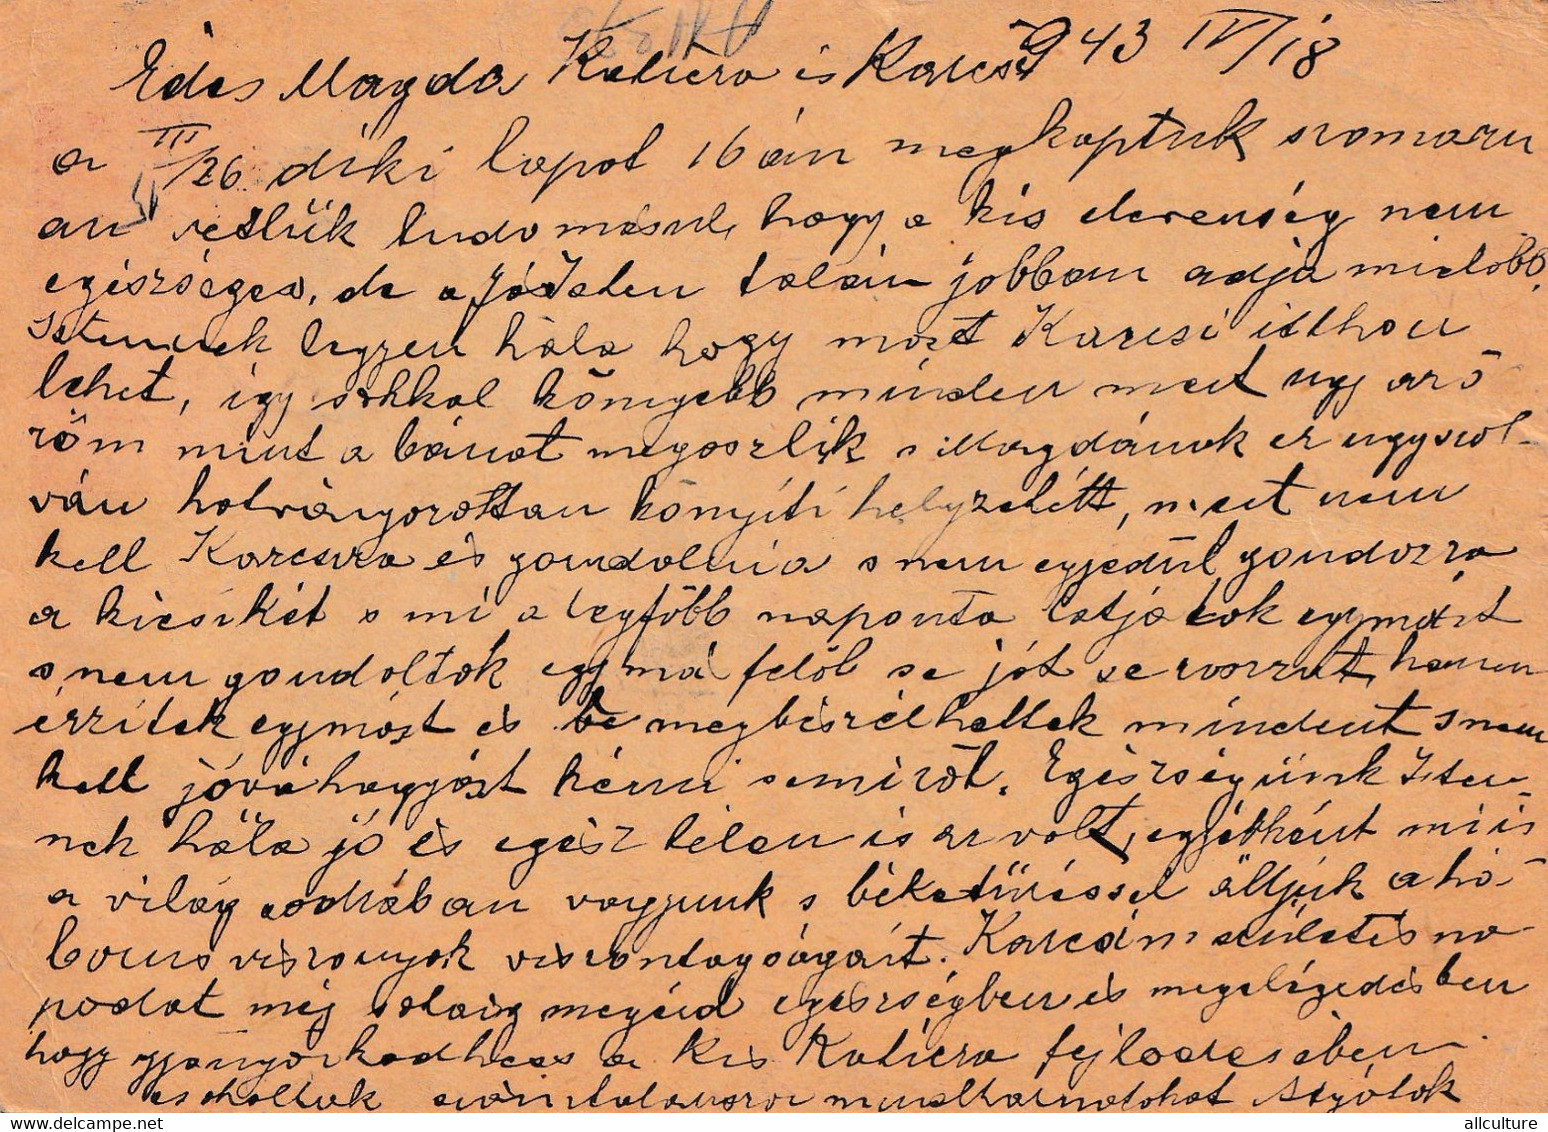 943 IV/18
Édes Magda Katicza és Karcsi
a III/26 diki lapot 16 án megkaptuk szomoru
an vettük tudomásul, hogy a kis elevenség nem
egészséges, de a Jóisten talán jobban adja mielőbb.
Istennek legyen hála hogy most Karcsi itthon
lehet, igy sokkal könyebb minden mert ugy az ö
röm mint a bánat megoszlik s Magdának ez ugyszol-
ván hatványozottan könyiti helyzetétt, mert nem
kell Karcsira és gondolnia s nem egyedül gondozza
a kicsikét s mi a legfőbb naponta látjátok egymást
s nem gondoltok egymá felől se jót se rosszat, hanem
érzitek egymást és be megbészélhettek mindent s nem
kell jóváhagyást kérni semiröl. Egészségünk Iste-
nek hála jó és egész télen is az volt, egyébként mi is
a világ sodrában vagyunk s béketüréssel álljuk a há-
borus viszonyok viszontagságait. Karcsim születés na-
podat még sokáig megérd egészségben és megelégedésben
hogy gyönyörködhess a kis Katicza fejlödésében
csokoltuk mindharmatokat Atyátok
allculture